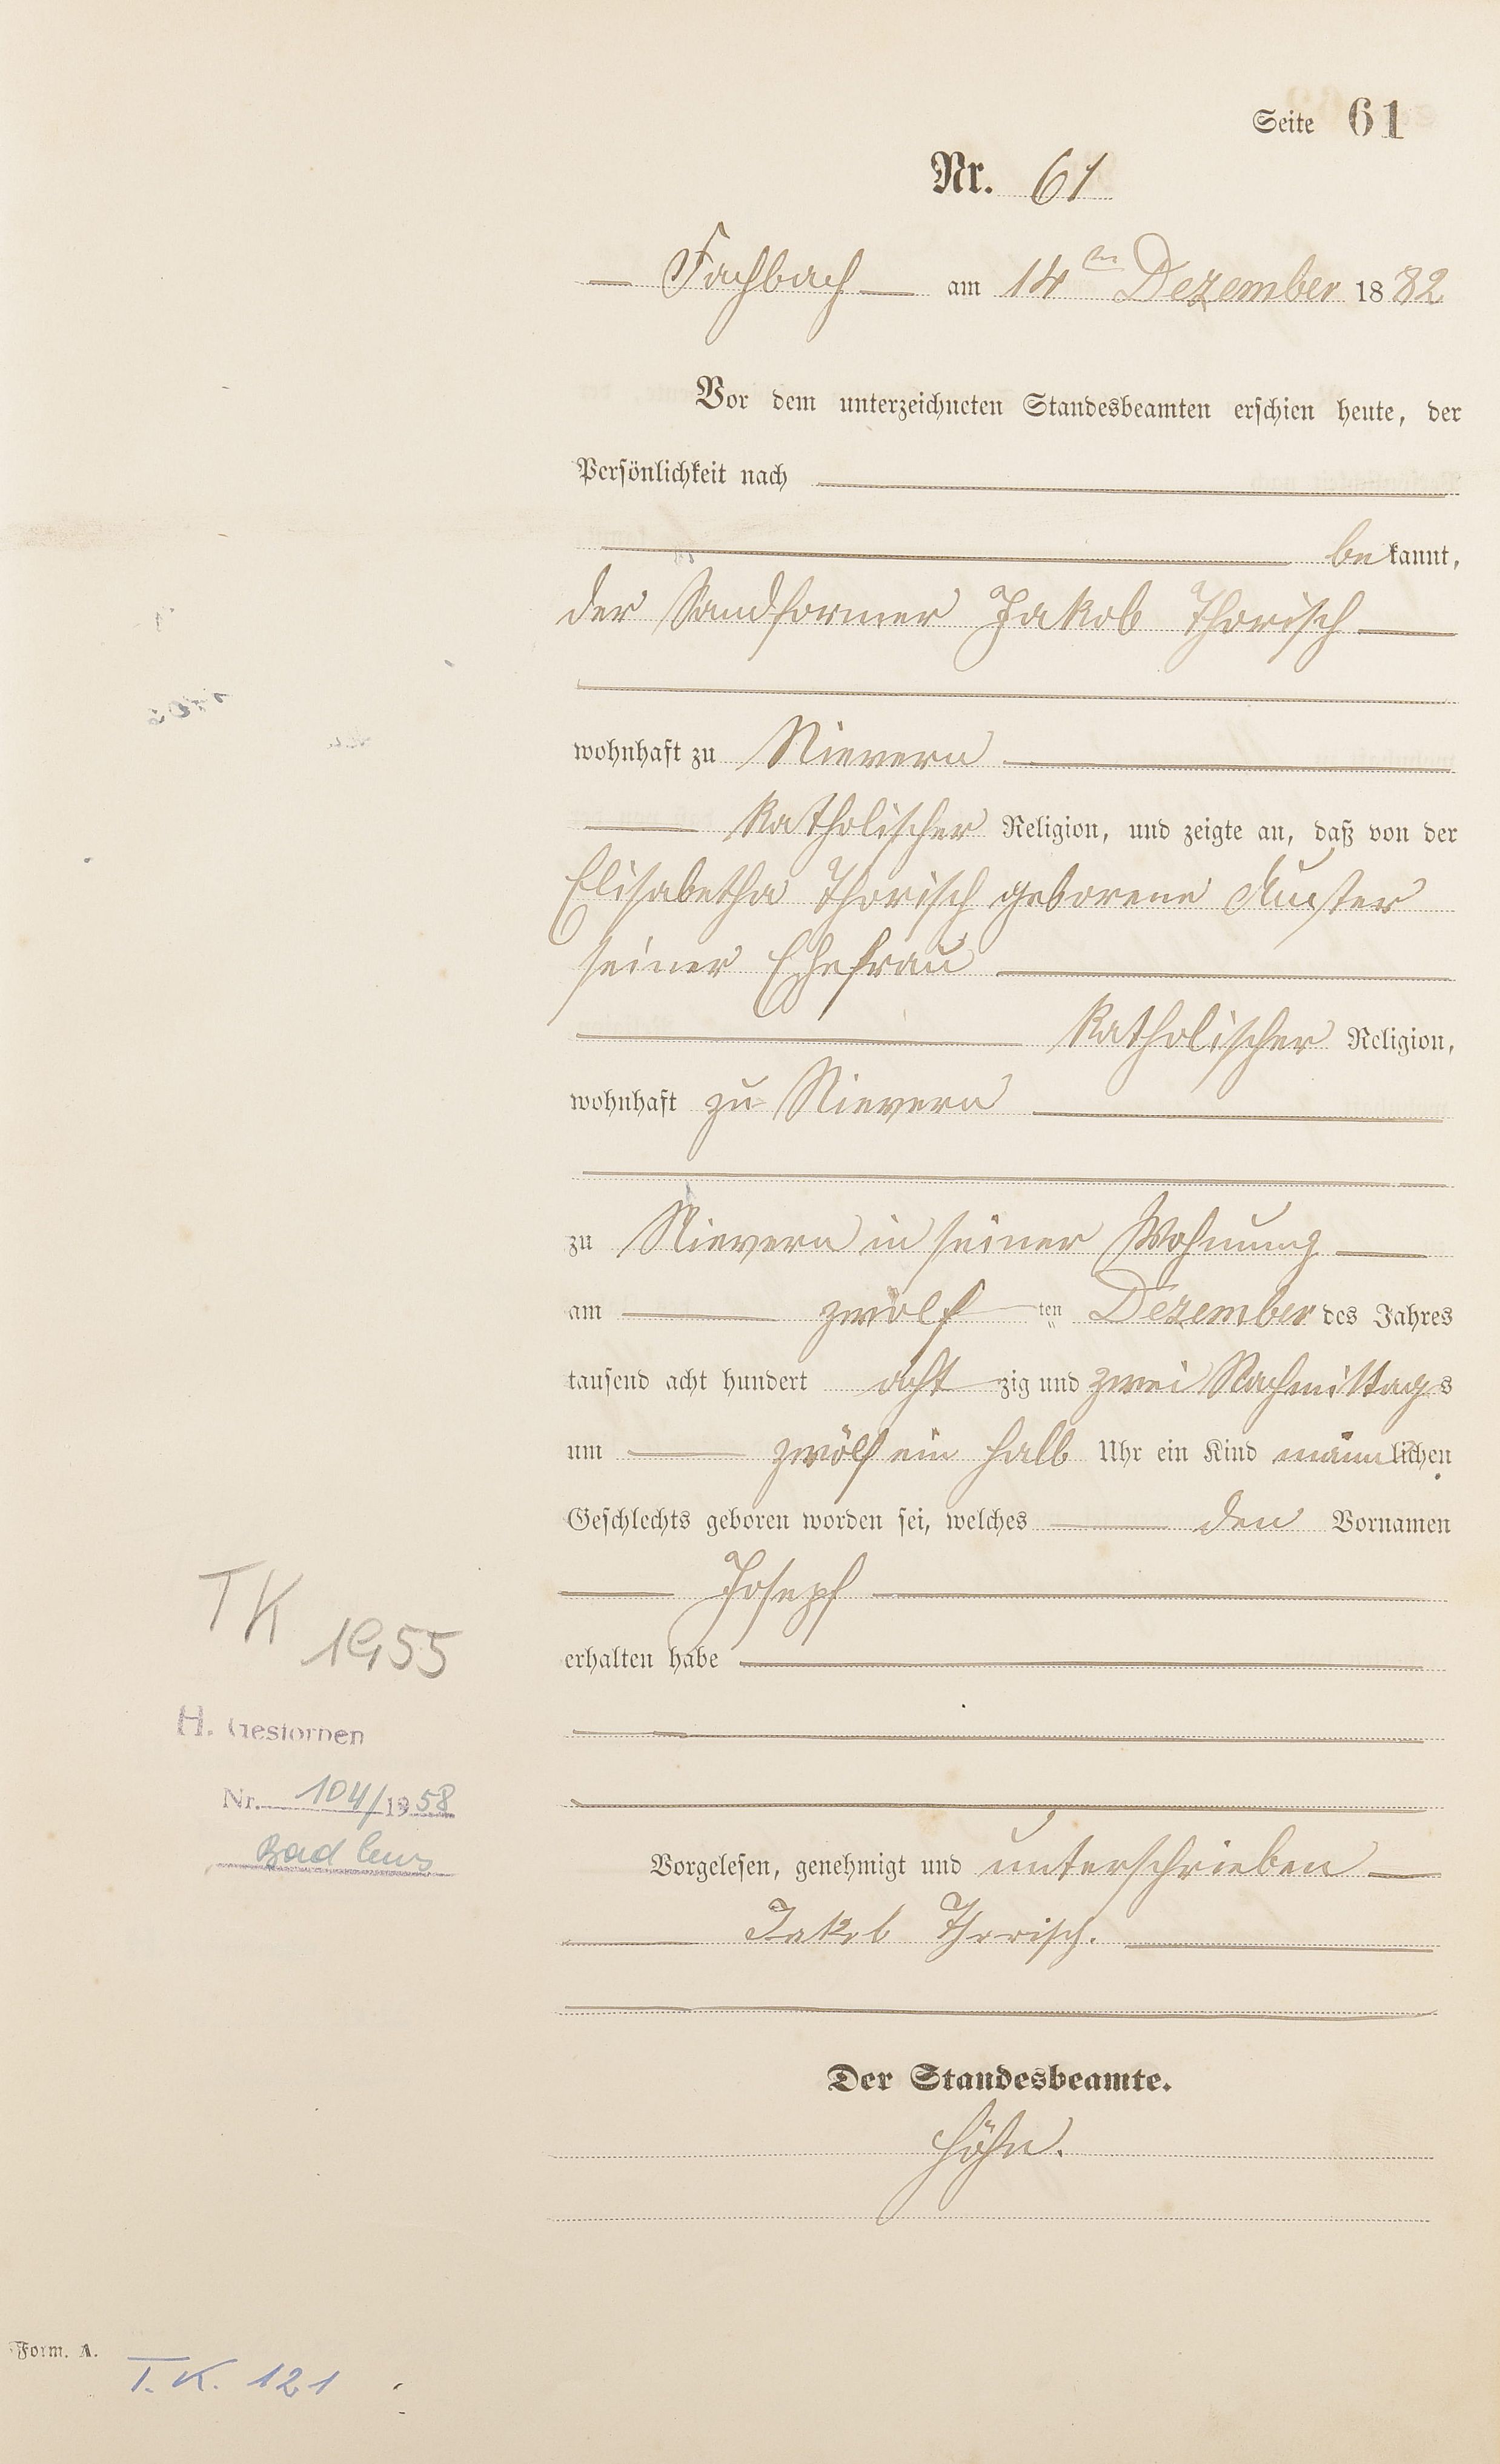 Seite 61
Nr. 61
Fachbach am 14ten Dezember 1882
Vor dem unterzeichneten Standesbeamten erschien heute, der
Persönlichkeit nach
bekannt,
der Sandformer Jakob Thorisch
wohnhaft zu Nievern
katholischer Religion, und zeigte an, daß von der
Elisabetha Thorisch geborene Muster
seiner Ehefrau
katholischer Religion,
wohnhaft zu Nievern
zu Nievern in seiner Wohnung
am zwölf ten Dezember des Jahres
tausend acht hundert acht zig und zwei Nachmittags
um zwölf ein halb Uhr ein Kind männlichen
Geschlechts geboren worden sei, welches den Vornamen
Joseph
erhalten habe
TK 1955
H. Gestorben
Nr. 104/1958
Bad Ems
Vorgelesen, genehmigt und unterschrieben
Jakob Thorisch.
Der Standesbeamte.
Höhn.
Form. A.
T.K. 121